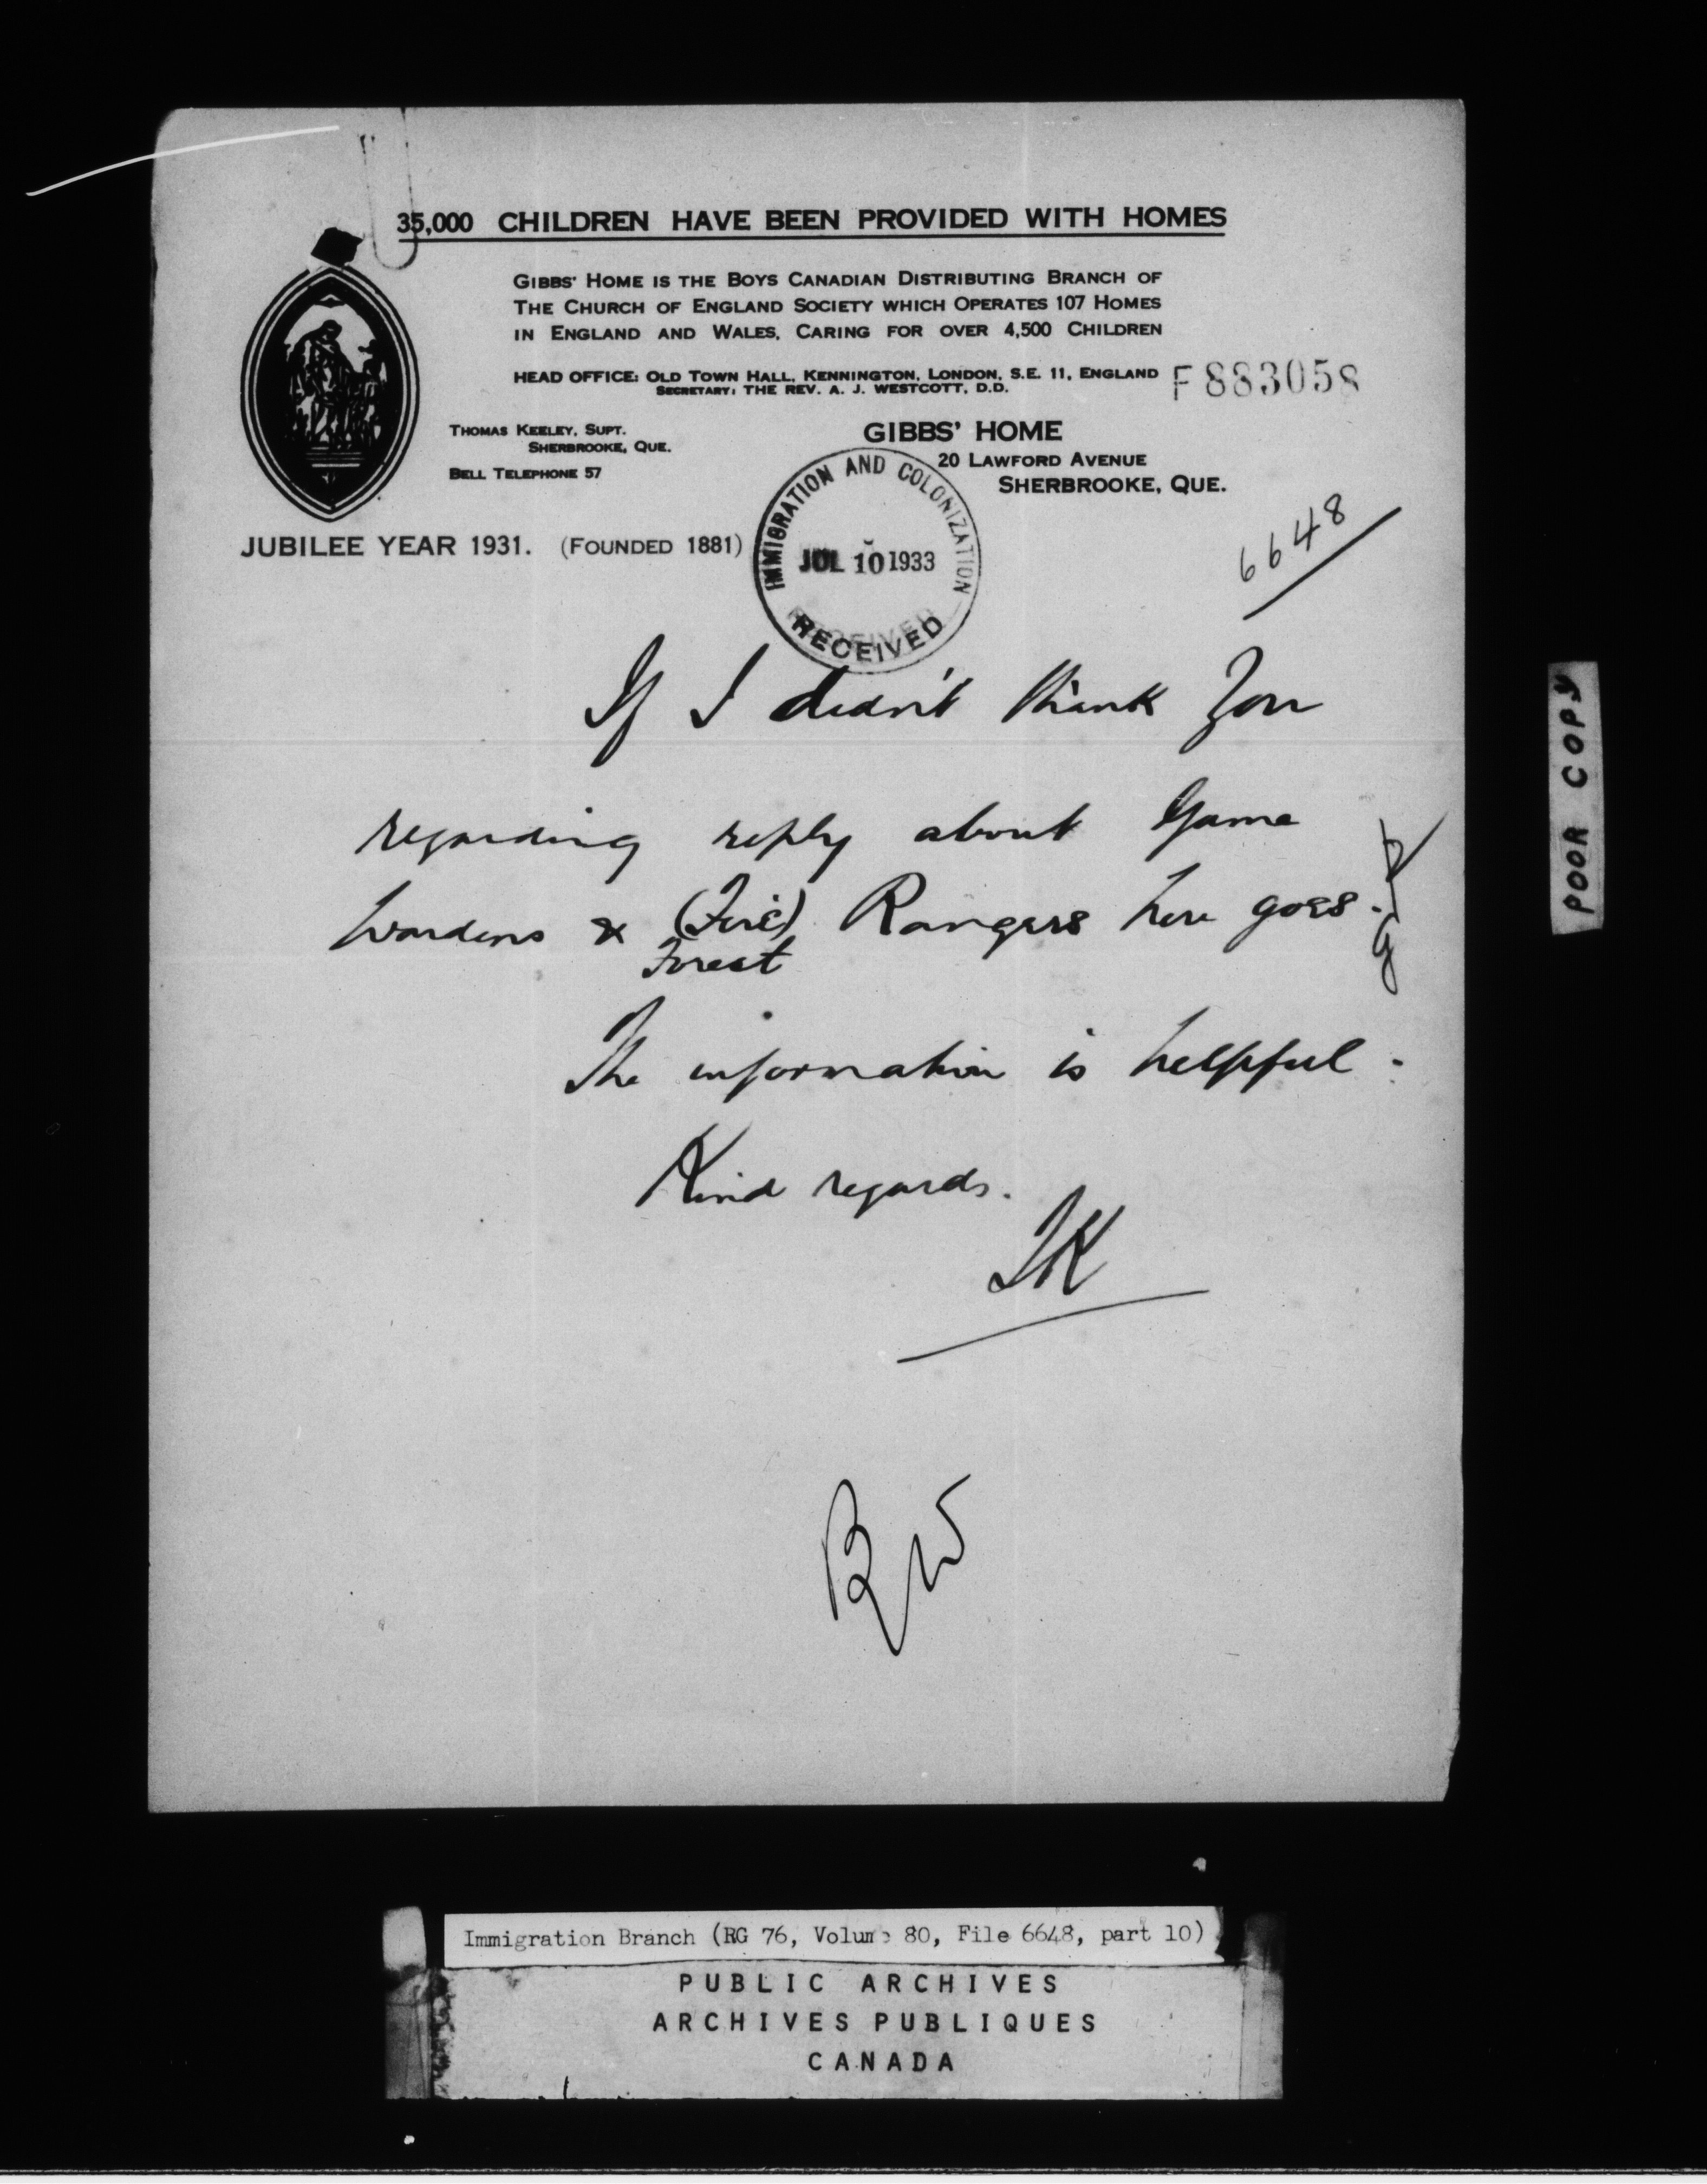 35,000 CHILDREN HAVE BEEN PROVIDED WITH HOMES
GIBBS' HOME IS THE BOYS CANADIAN DISTRIBUTING BRANCH OF
THE CHURCH OF ENGLAND SOCIETY WHICH OPERATES 107 HOMES
IN ENGLAND AND WALES, CARING FOR OVER 4,500 CHILDREN
HEAD OFFICE: OLD TOWN HALL, KENNINGTON, LONDON, S.E. 11, ENGLAND
SECRETARY: THE REV. A. J. WESTCOTT, D.D.
F883058
THOMAS KEELEY, SUPT.
SHERBROOKE, QUE.
BELL TELEPHONE 57
GIBBS' HOME
20 LAWFORD AVENUE
SHERBROOKE, QUE.
JUBILEE YEAR 1931. (FOUNDED 1881)
IMMIGRATION AND COLONIZATION
JUL 10 1933
RECEIVED
6648
If I didn't thank You
regarding reply about Game
Wardens & (Fire) Rangers here goes.
Forest
The information is helpful.
Kind regards.
TK
POOR COPY
Immigration Branch (RG 76, Volume 80, File 6648, part 10)
PUBLIC ARCHIVES
ARCHIVES PUBLIQUES
CANADA